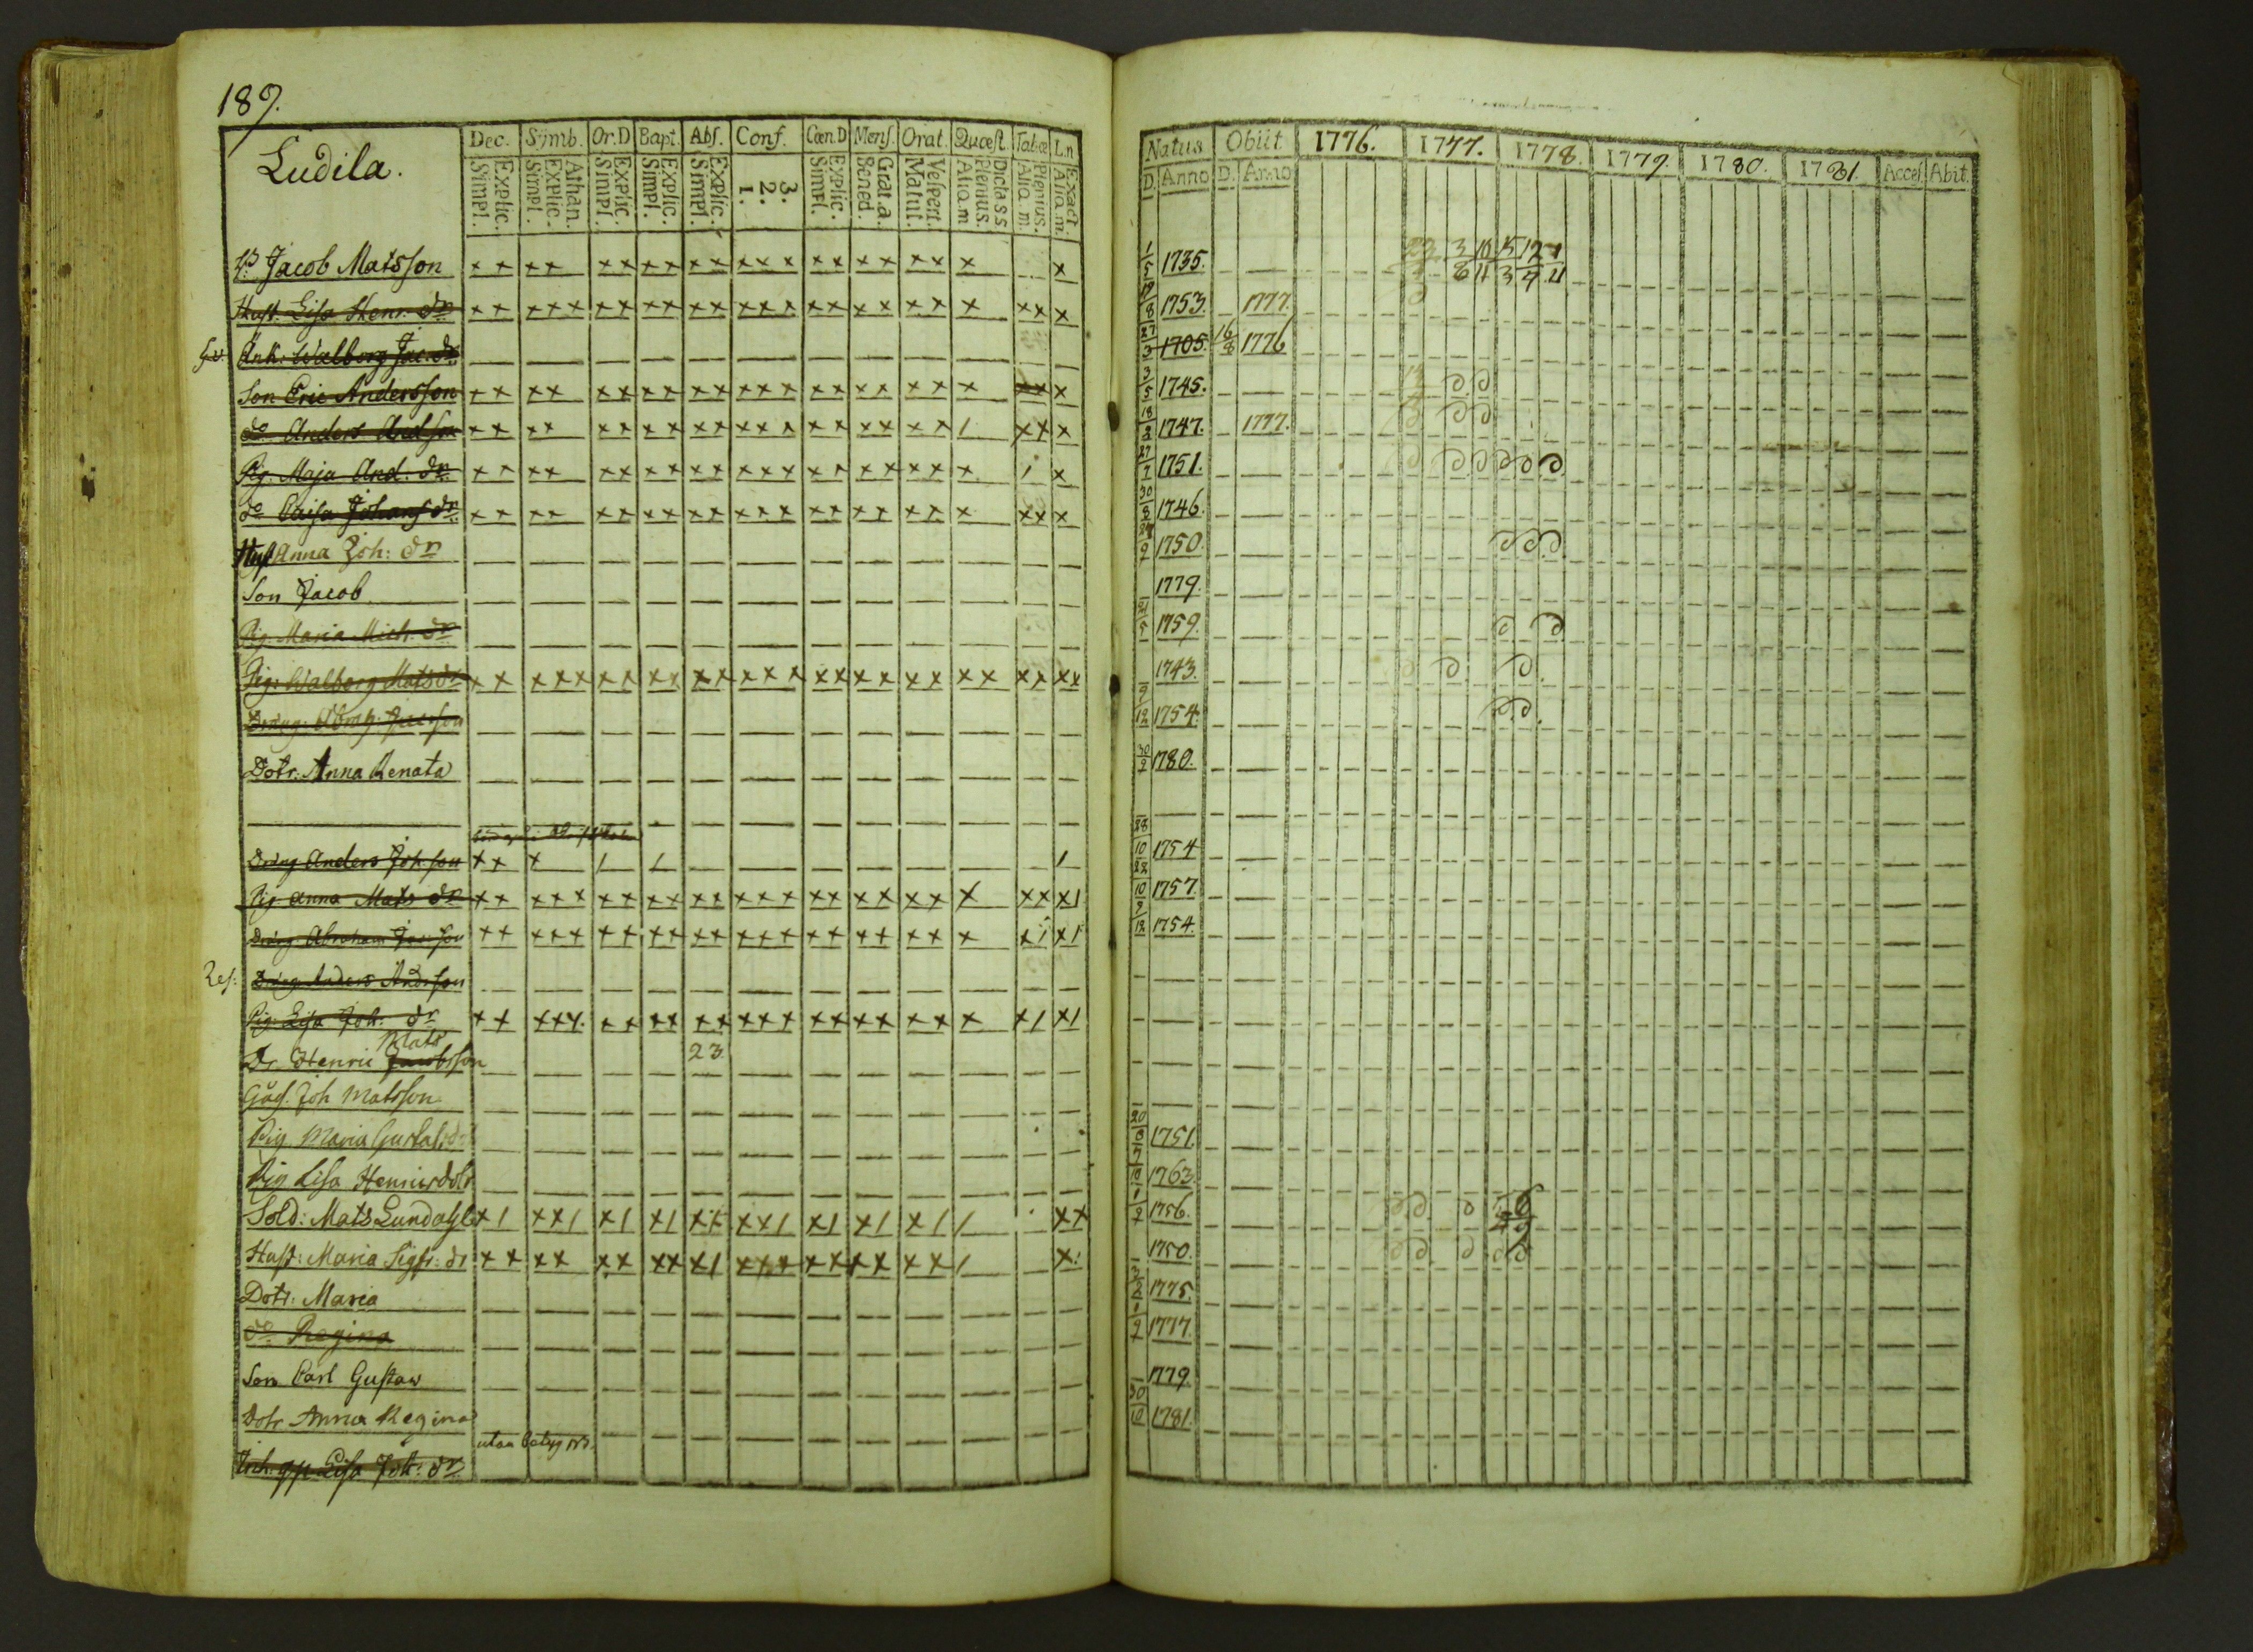 189.
Dec. Symb. Or.D Bapt. Abs. Conf. Cœn.D Mens. Orat. Quæst. Tabæ L.n
Ludila.
Simpl. Explic. Simpl. Explic. Athan. Simpl. Explic. Simpl. Explic. Simpl. Explic. 1. 2. 3. Simpl. Explic. Bened. Grat.a. Matut. Vespert. Aliq.m Plenius. Dicta SS Aliq.m Plenius. Aliq.m. Exact.
Jacob Matsson
Hust. Lisa Henr. dr
Änk. Walborg Jac. dr
Son Eric Andersson
do Anders And.son
Pig. Maja And. dr
do Caisa Johans dr
Hust Anna Joh: dr
Son Jacob
Pig. Maria Mich. dr
Pig. Walborg Mats dr
Dotr. Anna Renata
Dräng Anders Joh.son
Pig Anna Mats dr
Dräng Abraham
Dräng Anders Andrson
Pig. Lisa Joh: dr
Mats
Dr. Henric Jacobsson
23
Joh Matsson
Pig Maria Gustafsdr
Pig Lisa Henricsdotr
Sold: Mats Lundahl
Hust: Maria Sigfr: dr
Dotr: Maria
do Regina
Son Carl Gustaw
Dotr Anna Regina
utan
Lisa Joh: dr
Natus Obiit 1776. 1777. 1778. 1779. 1780. 1781. Acces. Abit.
D. Anno D. Anno
1/5 1735.
8 1753. 1777.
27/3 1705. 16/8 1776
3/5 1745.
1747. 1777.
1751.
1746.
1750.
1779.
1759.
1743.
9/12 1754.
1780.
28/10 1754
10 1757.
9/12 1754.
1751
1763.
1756.
1750.
1775.
1777.
1779.
30/10 1781.